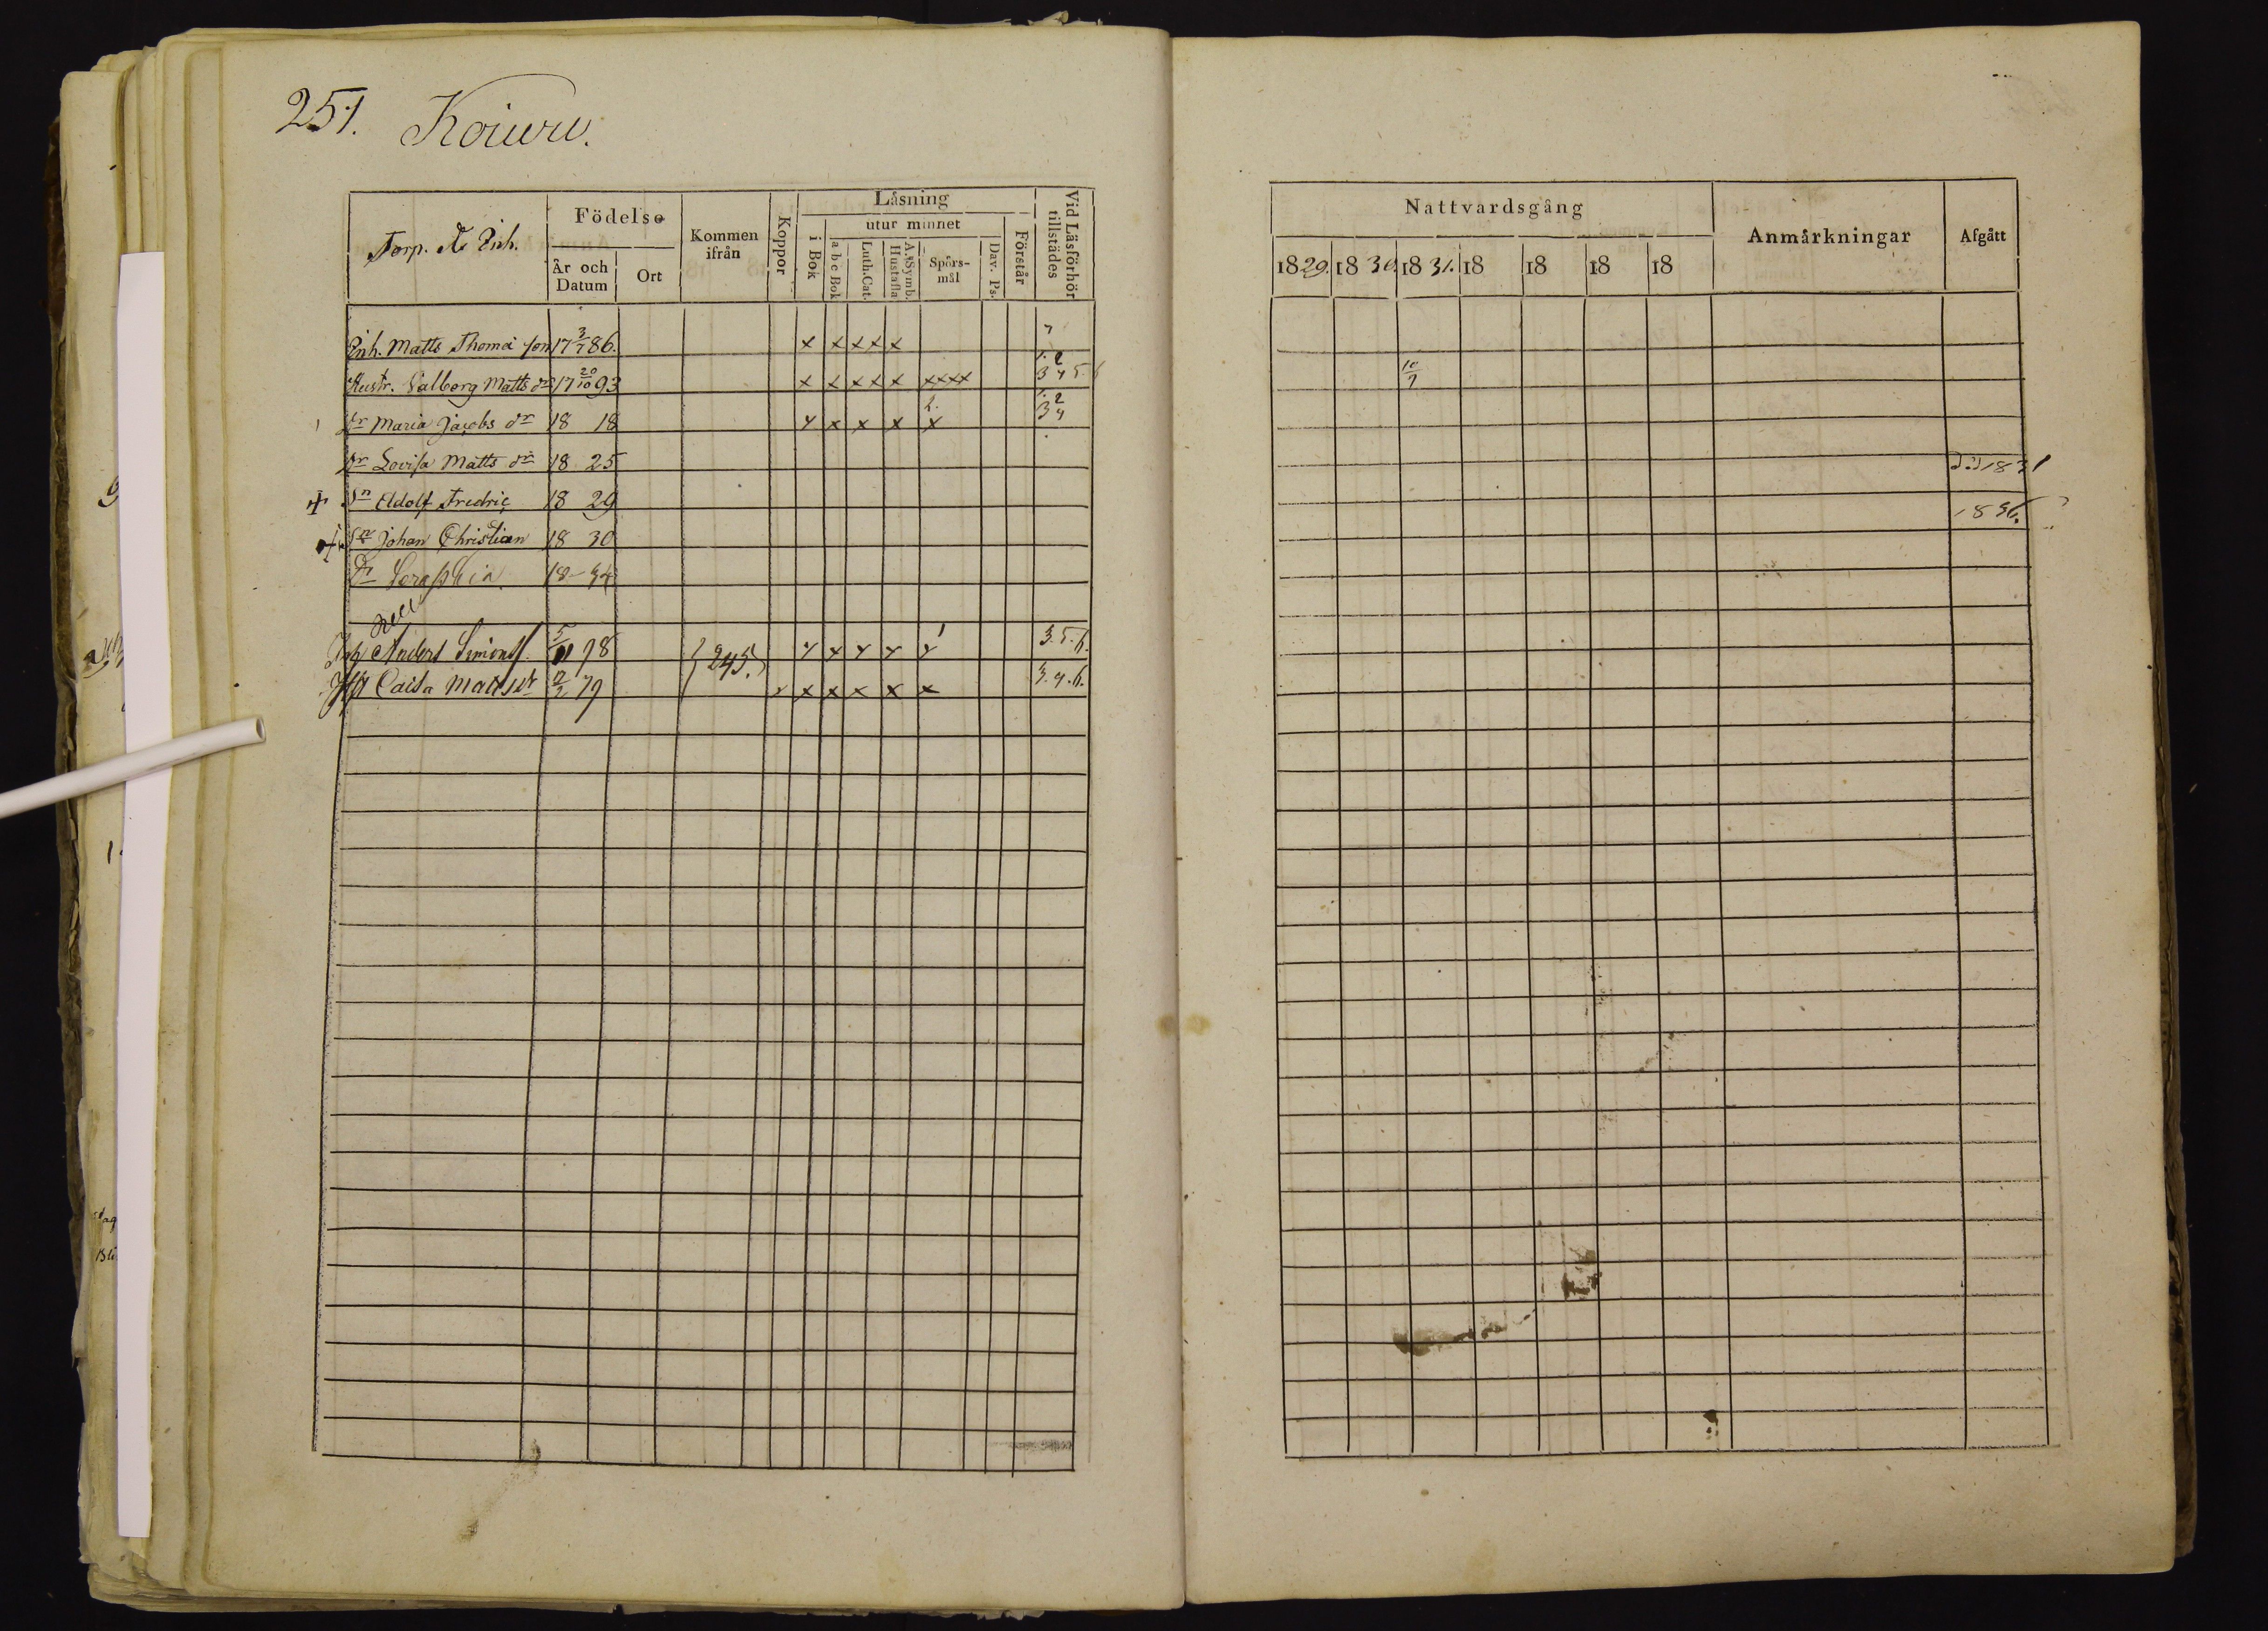 251. Koiwu.
Torp. & Inh.
Födelse
År och Datum
Ort
Kommen ifrån
Koppor
Läsning
i Bok
utur minnet
a b c Bok
Luth. Cat.
A. Symb. Hustafla
Spörs-mål
Dav. Ps.
Företår
Vid Läsförhör tillstädes
Inh. Matts Thomæ son 17 3/7 86. x x x x x 7
Hustr. Valborg Matts dr 17 20/10 93 x x x x x xxxx 1. 2 3 4 5. 6
Dr Maria Jacobs dr 18 18 x x x x 2. x 1. 2 3 4
Dr Lovisa Matts dr 18 25
+ Sn Adolf Fredric 18 29
+ Sn Johan Christian 18 30
Dr Seraphia 18 - 34
Anders Simons 5/11 78 } 245. x x x x x 3. 5. 6.
Caisa Matts dr 79 x x x x x x 3. 4. 6.
Nattvardsgång
Anmärkningar
Afgått
1829. 1830. 1831. 18 18 18 18
10/7
1831
1836.